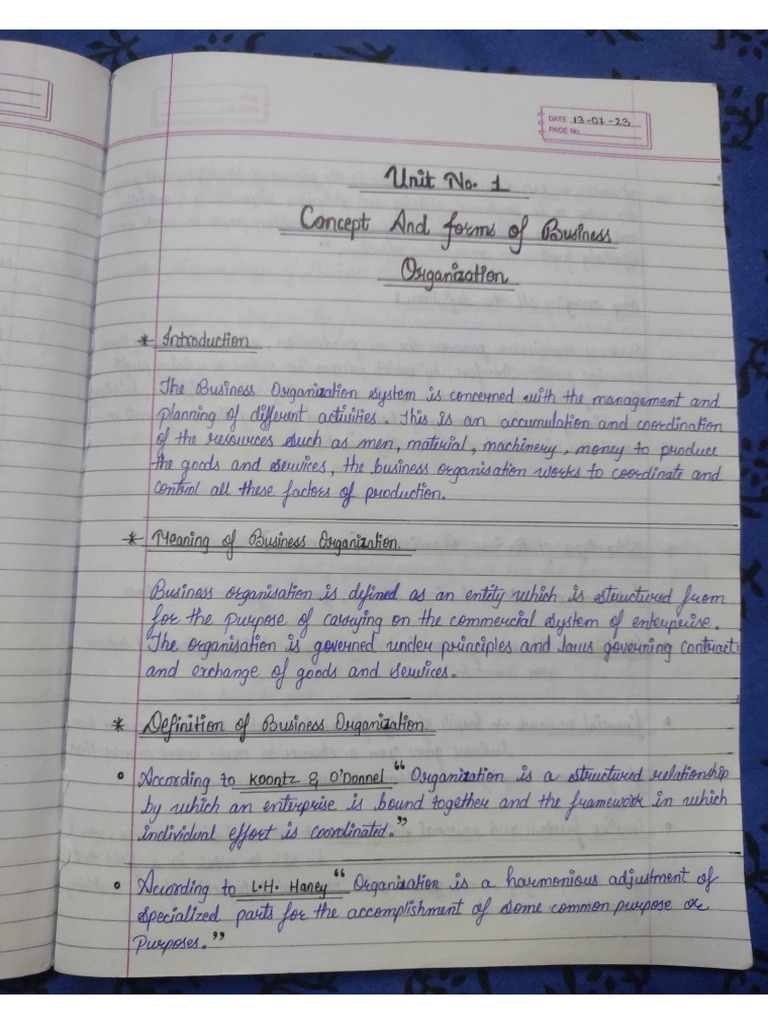 DATE 13-07-23
PAGE No.
Unit No. 1
Concept And forms of Business
Organization
* Introduction
The Business Organization system is concerned with the management and
planning of different activities. This is an accumulation and coordination
of the resources such as men, material, machinery, money to produce
the goods and services, the business organisation works to coordinate and
control all these factors of production.
* Meaning of Business Organization.
Business organisation is defined as an entity which is structured from
for the purpose of carrying on the commercial system of enterprise.
The organisation is governed under principles and laws governing contract
and exchange of goods and services.
* Definition of Business Organization.
• According to Koontz & O'Donnel "Organization is a structured relationship
by which an enterprise is bound together and the framework in which
individual effort is coordinated."
• According to L.H. Haney "Organization is a harmonious adjustment of
specialized parts for the accomplishment of some common purpose or
Purposes."